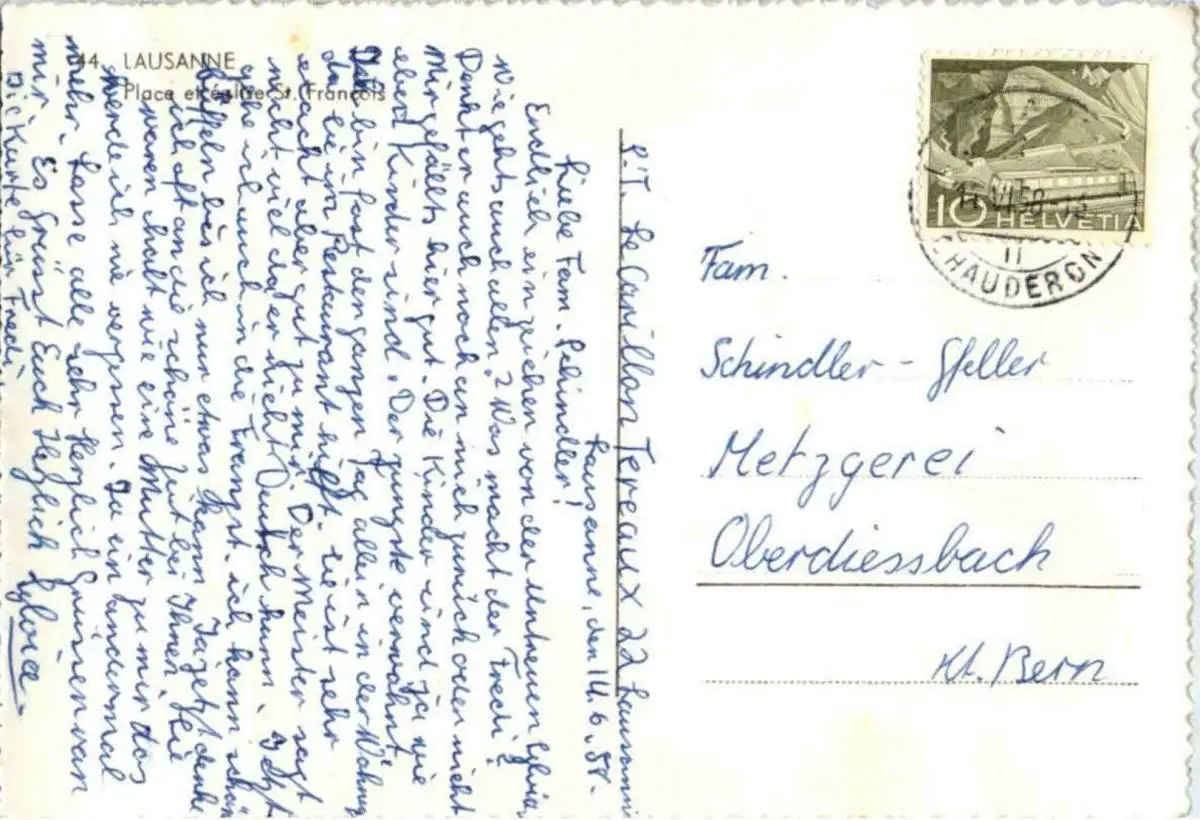 44. LAUSANNE
Place et église St. François
Lausanne, den 14.6.58.
Liebe Fam. Schindler!
Endlich ein zeichen von der untreuen Sylvia
wie gehts auch allen? Was macht der Fredi?
Denkt er auch noch an mich zurück oder nicht
Mir gefällts hier gut. Die Kinder sind ja wie
eben Kinder sind. Der jungste verwöhnt.
Ich bin fast den ganzen Tag allein in der Wohnung
da sie im Restaurant hilft. sie ist sehr
aber gut zu mir. Der Meister sagt
nicht viel da er nicht Deutsch kann. Jetzt
gehe ich auch in die Franzst. ich kann schön
büffeln bis ich nur etwas kann. Ja jetzt denke
ich oft an die schöne Zeit bei Ihnen. Sie
waren halt wie eine Mutter zu mir das
werde ich nie vergessen. Ja ein andermal
mehr. Lasse alle sehr Herzlich Grüssen von
mir. Es grüsst Euch Herzlich Sylvia
Die Karte für Fredi
P.T. Le Carillon Tereaux 22 Lausanne
10 HELVETIA
14.VI.58-15
II
CHAUDERON
Fam.
Schindler - Gfeller
Metzgerei
Oberdiessbach
Kt. Bern